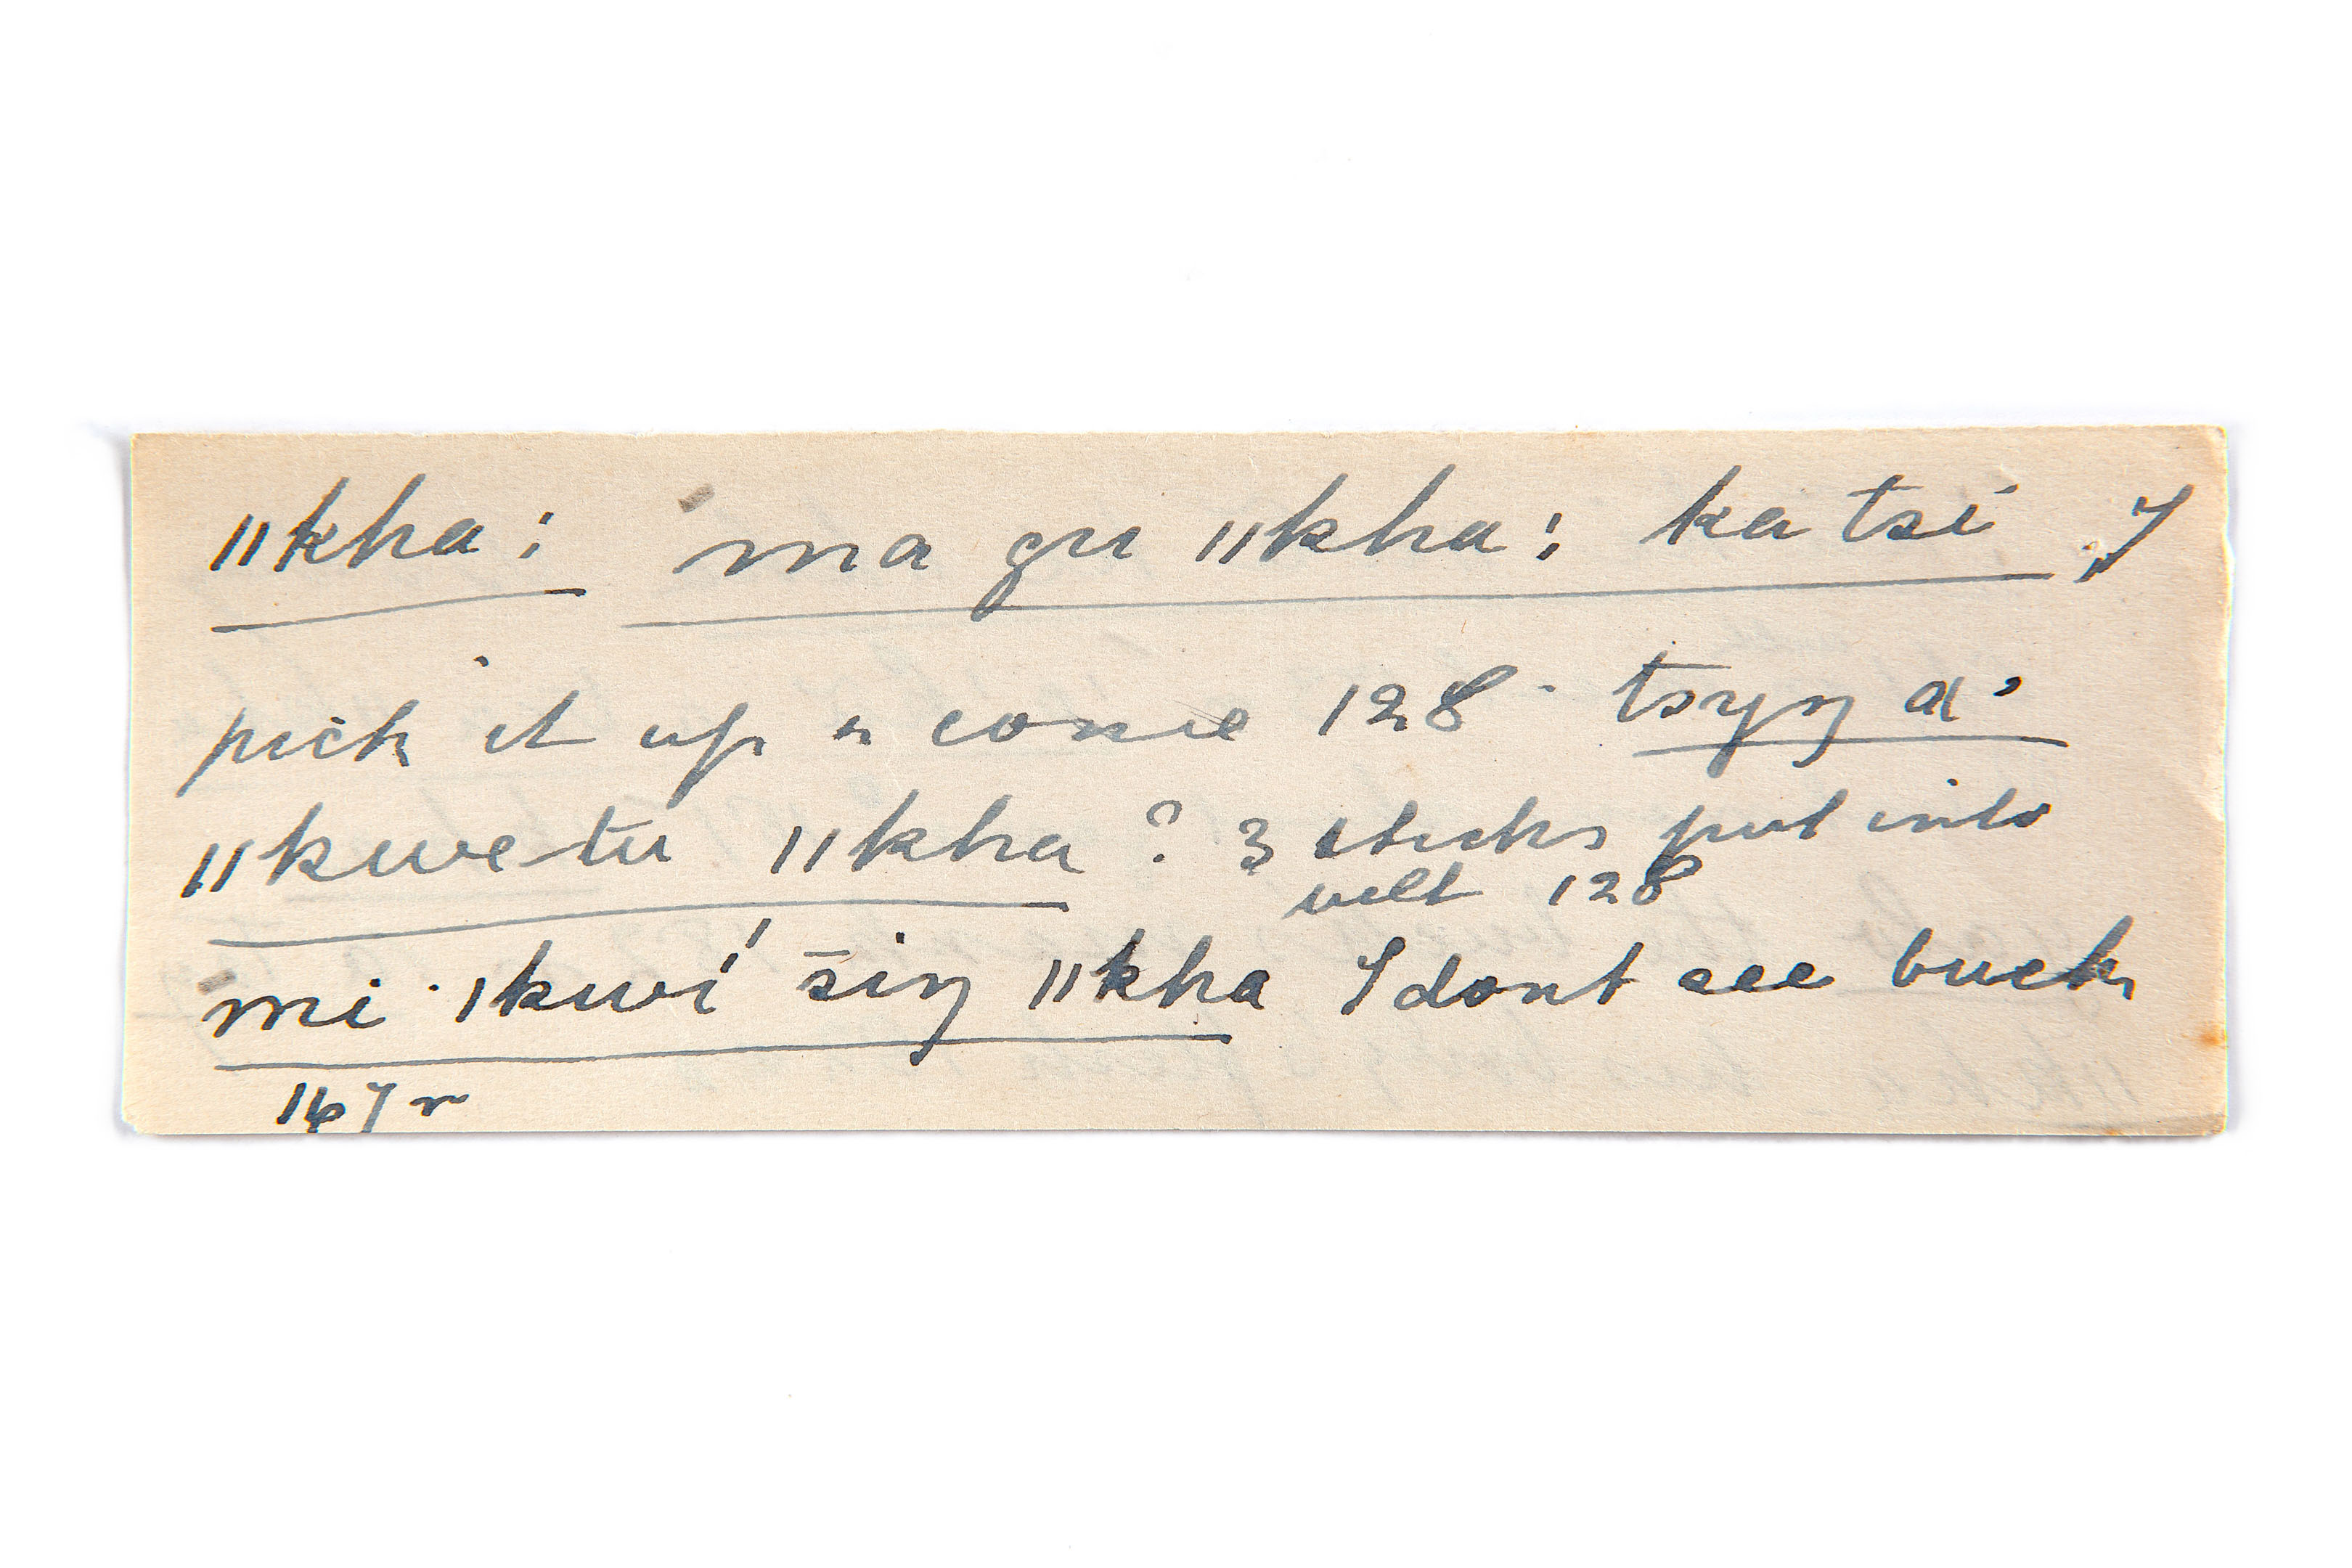 ǁkha: ma gu ǁkha: ka tsi, I
pick it up & come 128. tsyŋ a:
ǁkwe tu ǁkha? 3 sticks put into
velt 128
mi ǀkwí šiŋ ǁkha I dont see buck